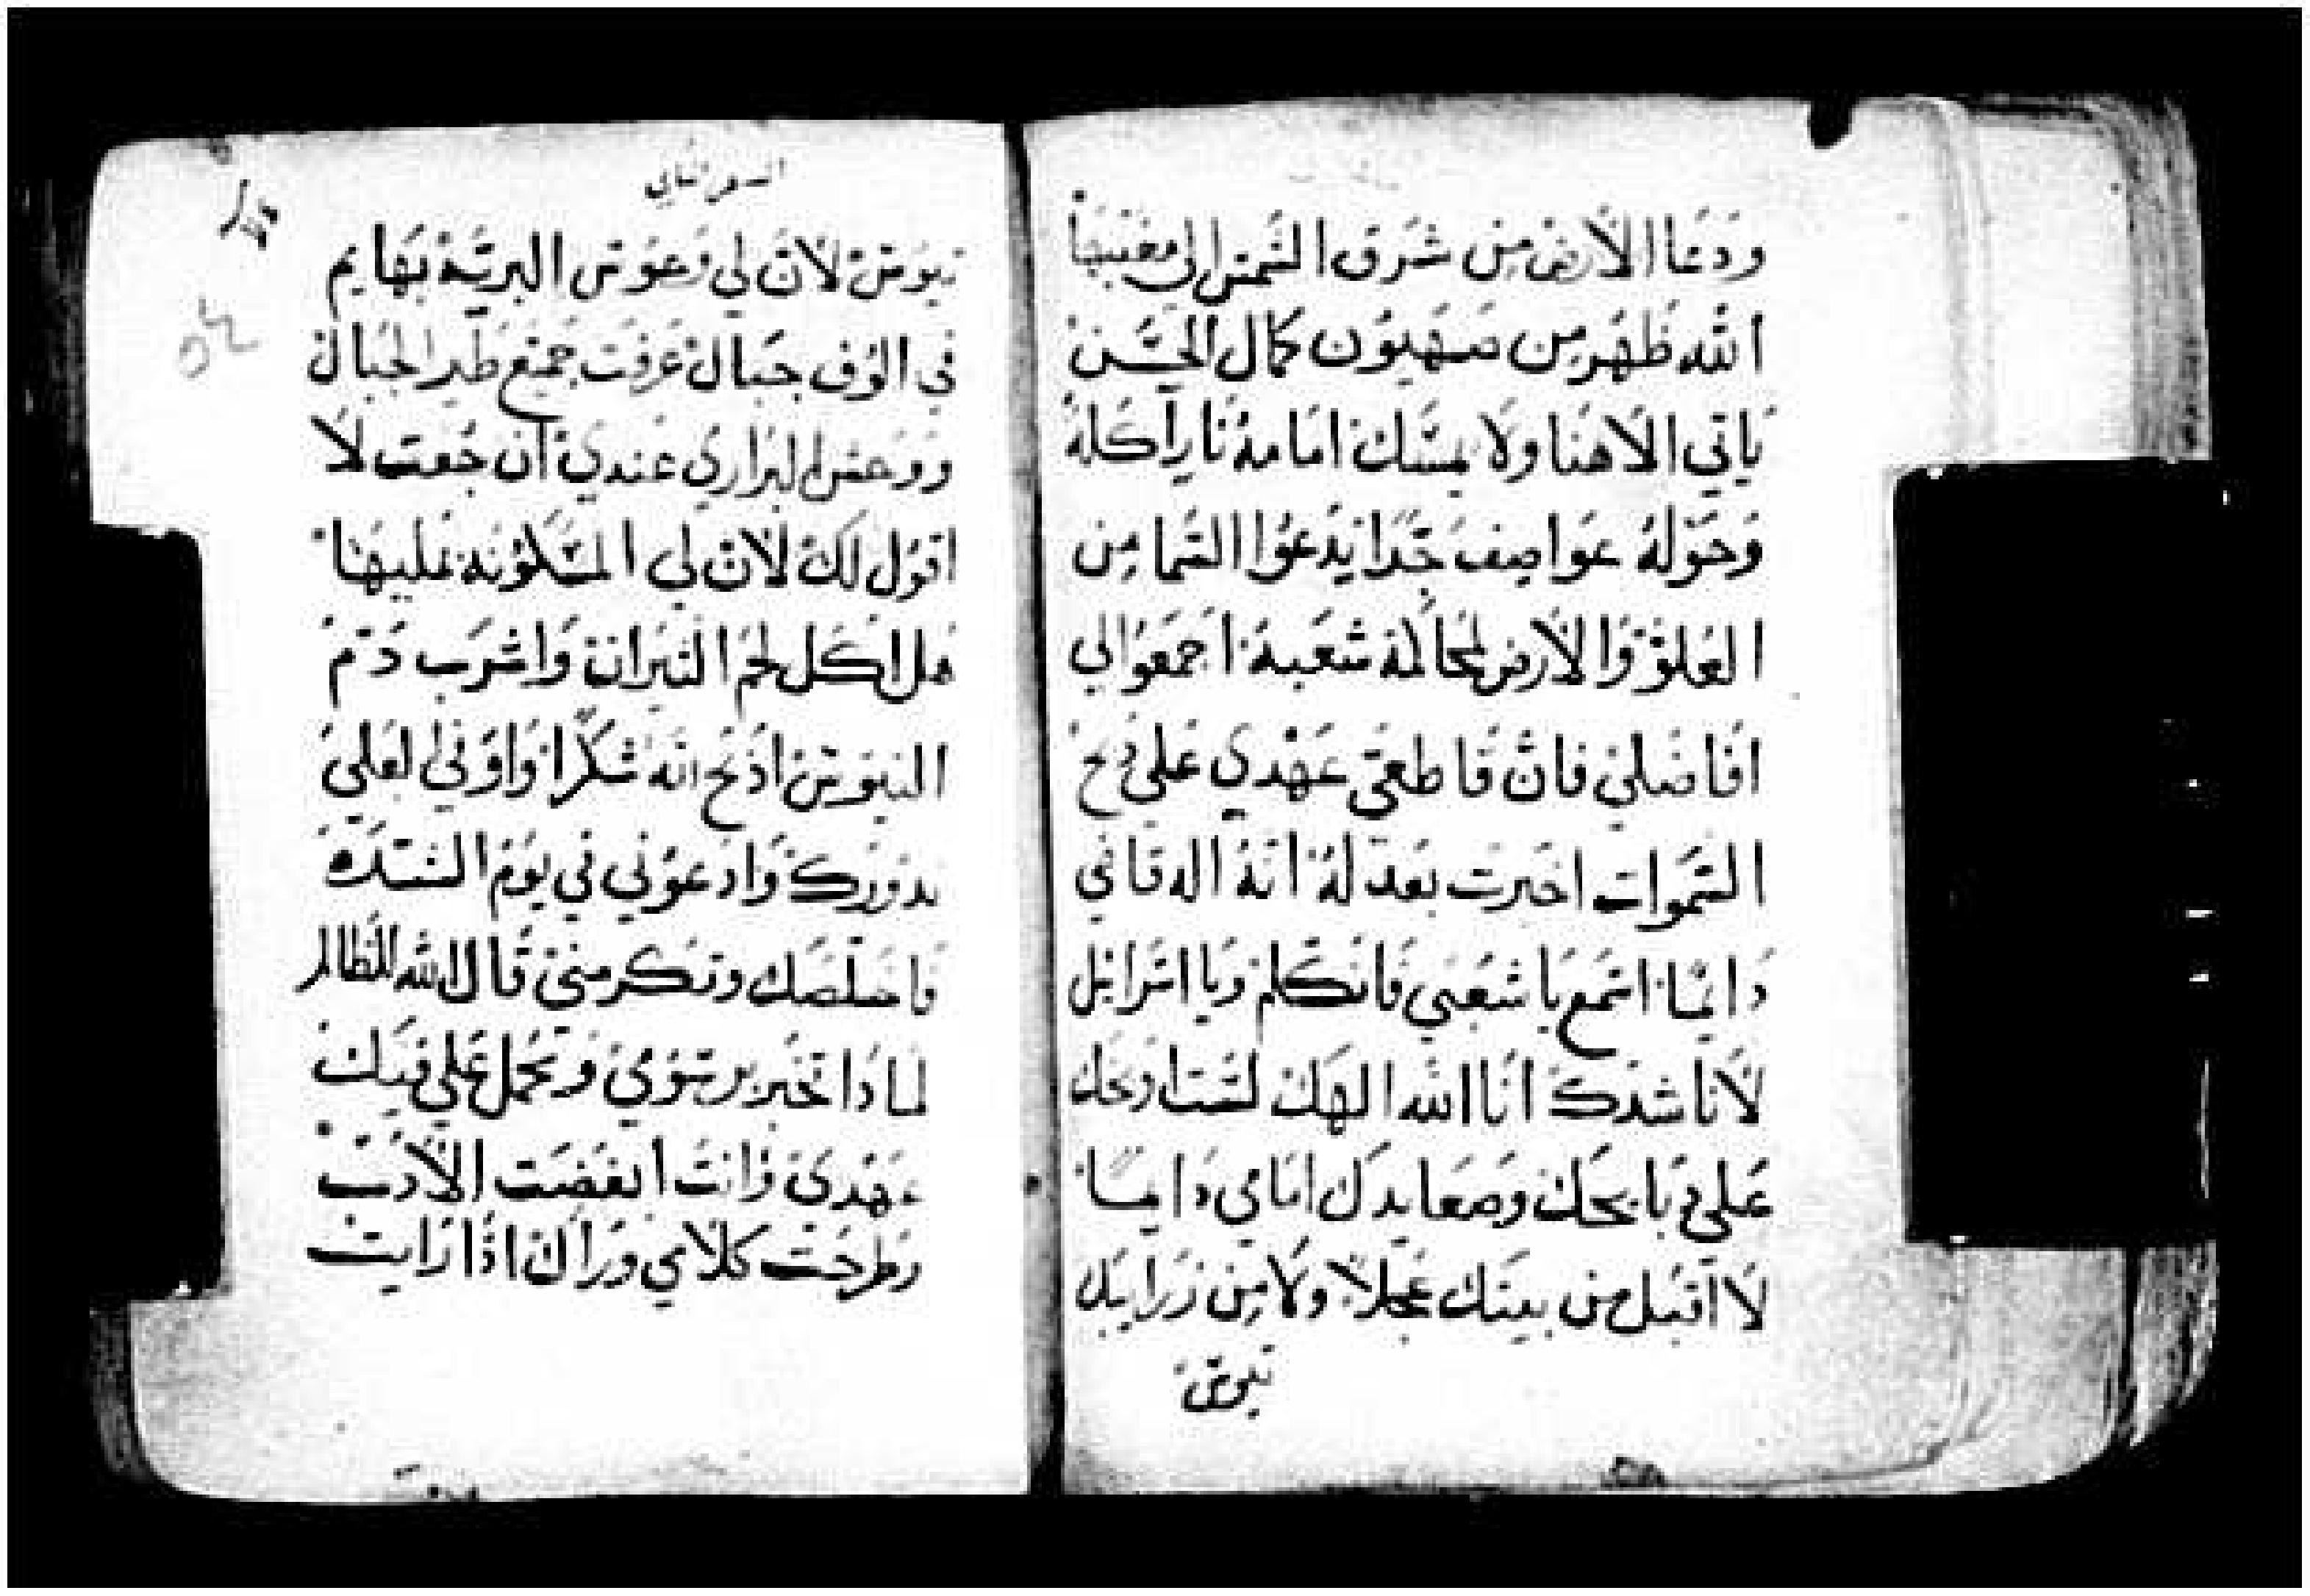 ودعا الارض من شرق الشمس الى مغيبها
الله ظهر من صهيون كمال الحسن
ياتي الاهنا ولا يمسك امامه نارا اكله
وحوله عواصف جدا يدعوا السما من
العلو والارض لمحاكمة شعبه اجمعوا لي
افاضلي فان قاطعي عهدي على ذبح
السموات اخبرت بعدله انه اله قاضي
دايما اسمع يا شعبي فاتكلم ويا اسرايل
لاناشدك انا الله الهك لست اوبخك
على ذبايحك وصعايدك امامي دايما
لا اقبل من بيتك عجلا ولا من زرايبك
تيوس
السفر الثاني
تيوس لان لي وحوش البرية بهايم
في الوف جبال عرفت جميع طير الجبال
ووحش البراري عندي ان جعت لا
اقول لك لان لي المسكونه بمليها
هل اكل لحم الثيران واشرب دم
التيوس اذبح لله شكرا واوفي لعلي
بدورك وادعوني في يوم الشده
فاخلصك وتكرمني قال الله للظالم
لماذا تخبر برسومي وتحمل على فيك
عهدي وانت ابغضت الادب
وطرحت كلامي وراك اذا رايت